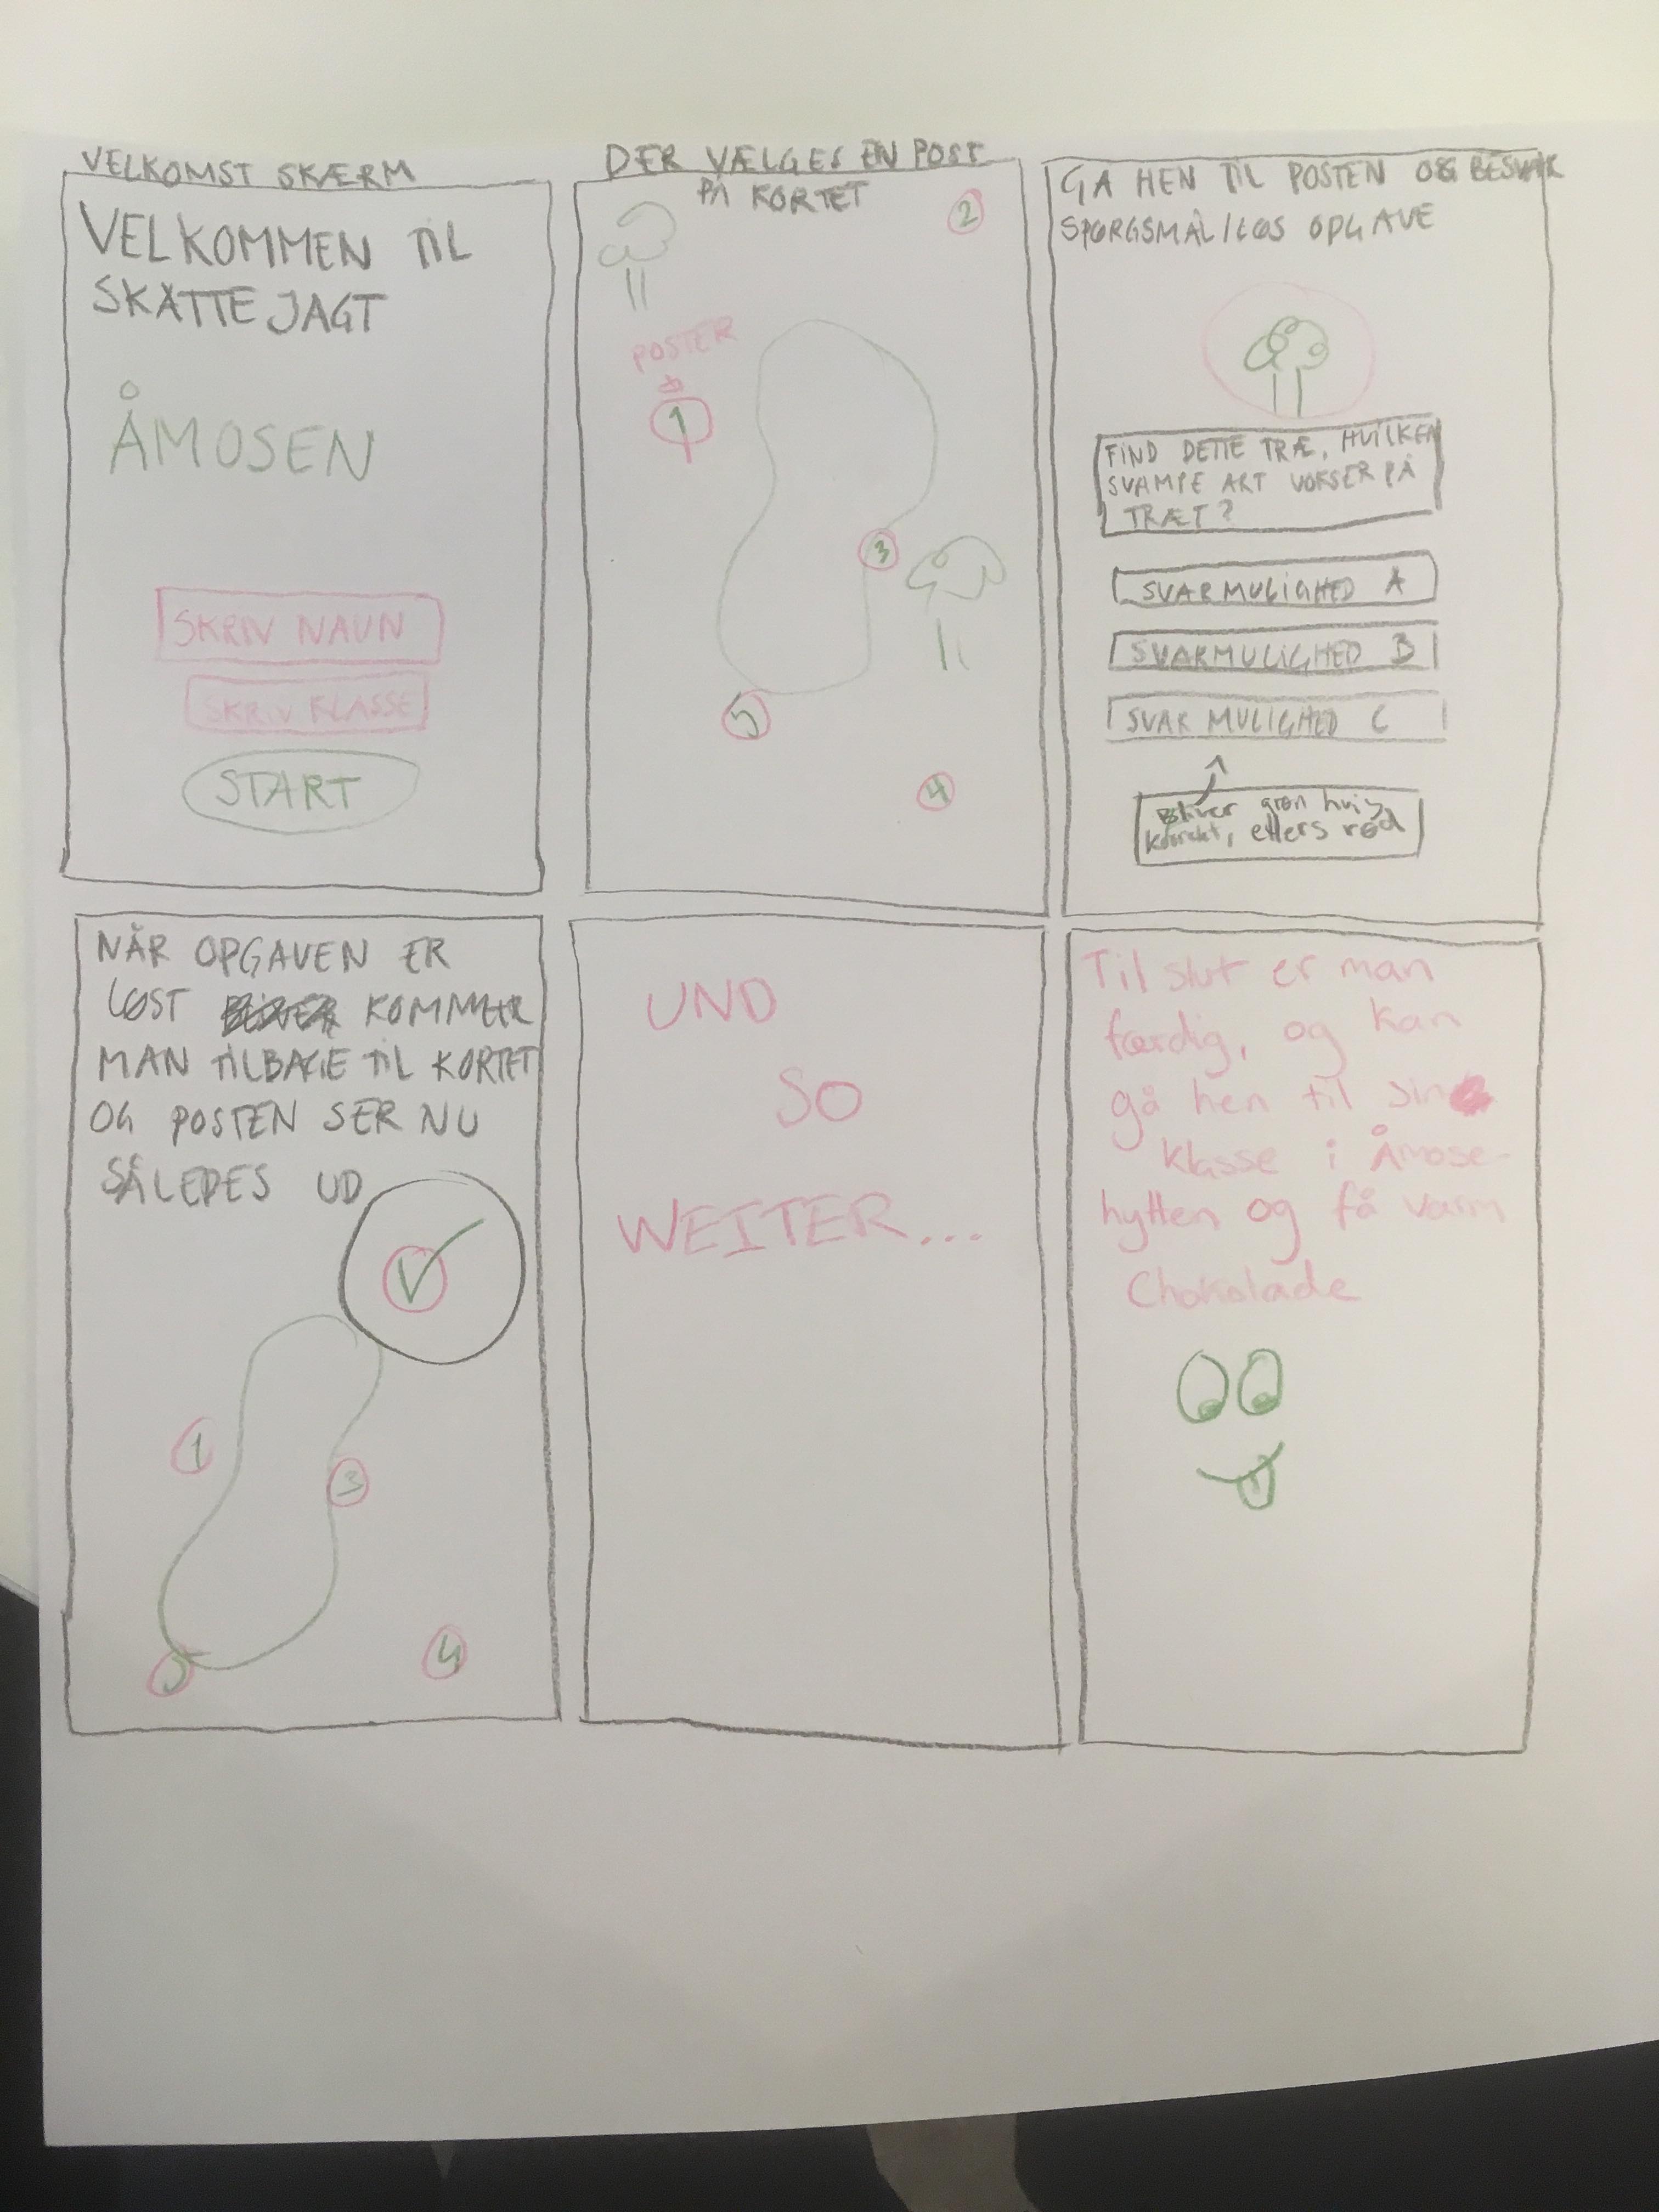 VELKOMST SKÆRM
VELKOMMEN TIL
SKATTEJAGT
ÅMOSEN
SKRIV NAVN
SKRIV KLASSE
START
DER VÆLGES EN POST
PÅ KORTET
2
POSTER
1
3
5
4
GÅ HEN TIL POSTEN OG BESVAR
SPØRGSMÅL/LØS OPGAVE
FIND DETTE TRÆ, HVILKEN
SVAMPE ART VOKSER PÅ
TRÆT?
SVARMULIGHED A
SVARMULIGHED B
SVAR MULIGHED C
Bliver grøn hvis
korrekt, ellers rød
NÅR OPGAVEN ER
LØST KOMMER
MAN TILBAGE TIL KORTET
OG POSTEN SER NU
SÅLEDES UD
1
3
5
4
UND
SO
WEITER...
Til slut er man
færdig, og kan
gå hen til sin
klasse i Åmose-
hytten og få varm
Chokolade